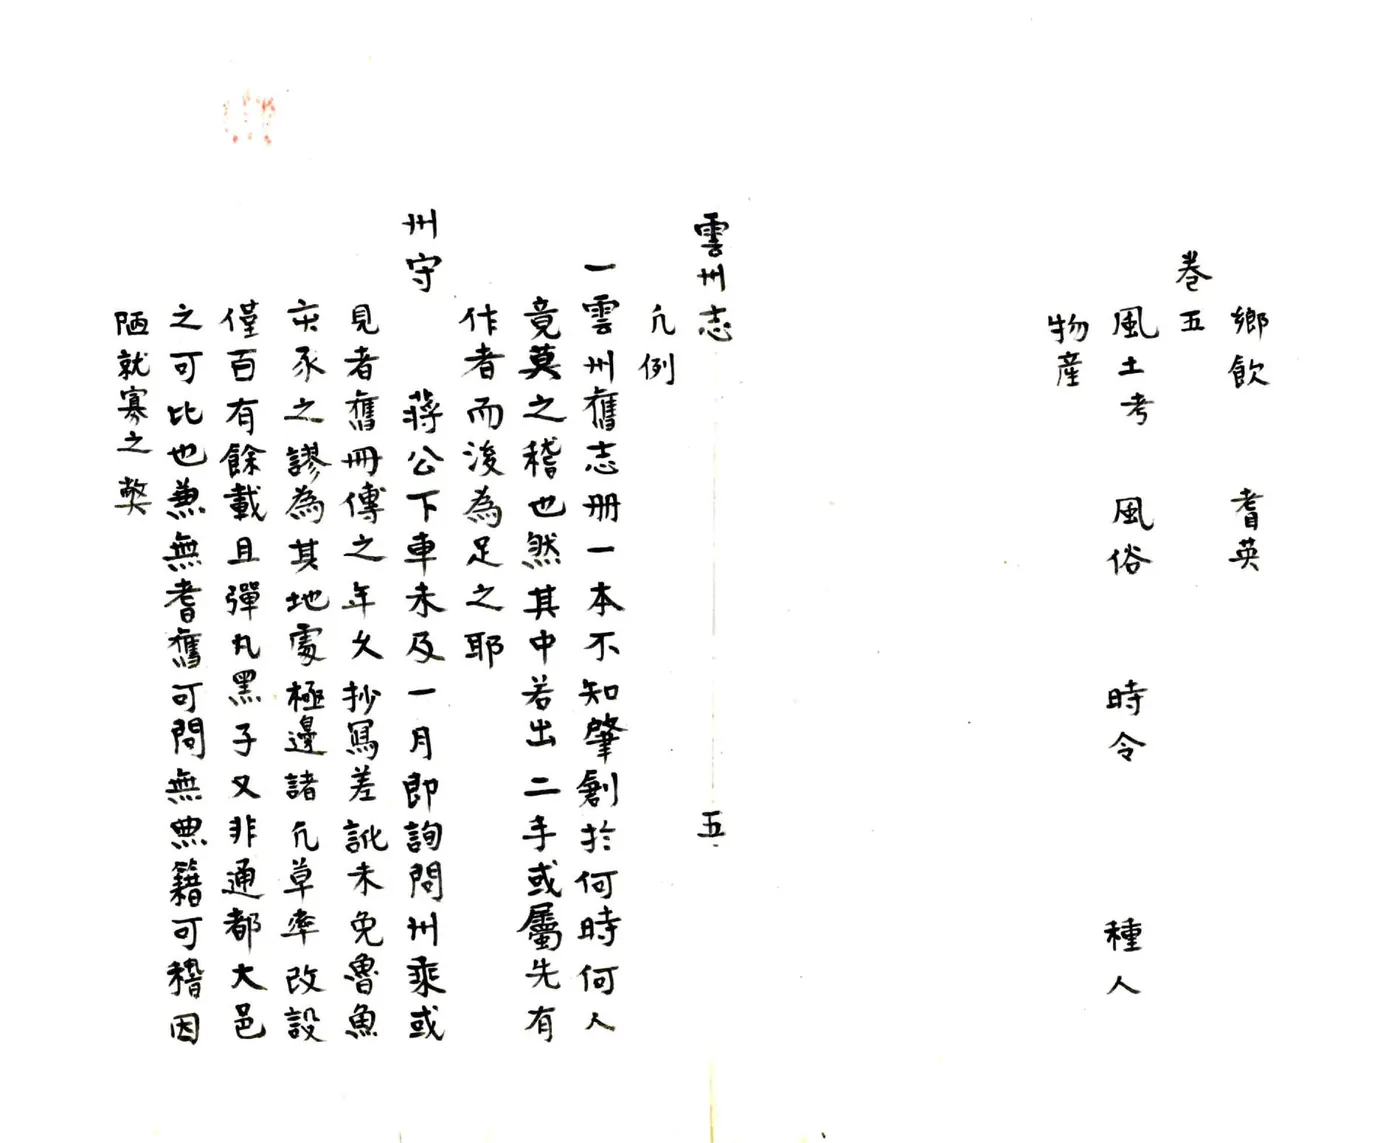 鄉飲 耆英
卷五
風土考 風俗 時令 種人
物産
雲州志 五
凢例
一雲州舊志册一本不知肇創於何時何人
竟莫之稽也然其中若出二手或屬先有
作者而後為足之耶
州守 蔣公下車未及一月即詢問州乘或
見者舊冊傳之年久抄寫差訛未免魯魚
亥豕之謬為其地處極邊諸凢草率改設
僅百有餘載且彈丸黑子又非通都大邑
之可比也兼無耆舊可問無典籍可稽因
陋就寡之獘